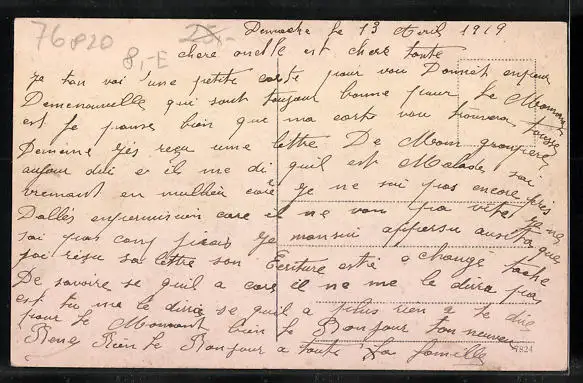 76820
25,-
8,-E
Demache Le 13 Avril 1919
chere oncle est chere tante
Je tan voi une petite carte pour vou Donnét
Demenouvelle qui sont toujour bonne pour le Moman
est Je panse bien que ma carte vou trouvera
Demaine Jés reçu une lettre De Mon
aujour dui e il me di quil est Malade
vremant en malheu care Je ne sui pas encore
Dalles enpermision care il ne von pa
sai pas Je mansui appersu ausito que
jai résu sa lettre son Ecriture estié changé
De savoire se quil a care il ne me le dira pas
est tu me le dira se quil a plus rien a te dire
pour le Momant bien le Bonjour ton neveu
René Bien le Bonjour a toute La famille
7824